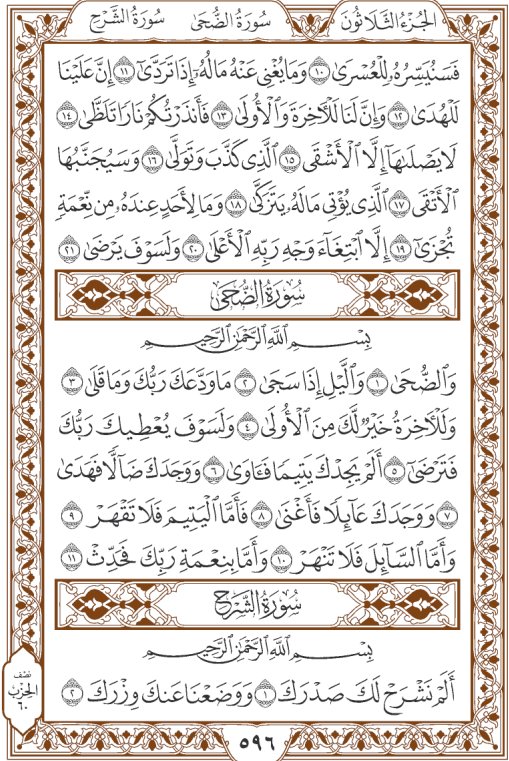 الجُزْءُ الثَّلَاثُونَ سُورَةُ الضُّحَى سُورَةُ الشَّرْحِ
فَسَنُيَسِّرُهُۥ لِلۡعُسۡرَىٰ ١٠ وَمَا يُغۡنِي عَنۡهُ مَالُهُۥٓ إِذَا تَرَدَّىٰٓ ١١ إِنَّ عَلَيۡنَا
لَلۡهُدَىٰ ١٢ وَإِنَّ لَنَا لَلۡأٓخِرَةَ وَٱلۡأُولَىٰ ١٣ فَأَنذَرۡتُكُمۡ نَارٗا تَلَظَّىٰ ١٤
لَا يَصۡلَىٰهَآ إِلَّا ٱلۡأَشۡقَى ١٥ ٱلَّذِي كَذَّبَ وَتَوَلَّىٰ ١٦ وَسَيُجَنَّبُهَا
ٱلۡأَتۡقَى ١٧ ٱلَّذِي يُؤۡتِي مَالَهُۥ يَتَزَكَّىٰ ١٨ وَمَا لِأَحَدٍ عِندَهُۥ مِن نِّعۡمَةٖ
تُجۡزَىٰٓ ١٩ إِلَّا ٱبۡتِغَآءَ وَجۡهِ رَبِّهِ ٱلۡأَعۡلَىٰ ٢٠ وَلَسَوۡفَ يَرۡضَىٰ ٢١
سُورَةُ الضُّحَى
بِسۡمِ ٱللَّهِ ٱلرَّحۡمَٰنِ ٱلرَّحِيمِ
وَٱلضُّحَىٰ ١ وَٱلَّيۡلِ إِذَا سَجَىٰ ٢ مَا وَدَّعَكَ رَبُّكَ وَمَا قَلَىٰ ٣
وَلَلۡأٓخِرَةُ خَيۡرٞ لَّكَ مِنَ ٱلۡأُولَىٰ ٤ وَلَسَوۡفَ يُعۡطِيكَ رَبُّكَ
فَتَرۡضَىٰٓ ٥ أَلَمۡ يَجِدۡكَ يَتِيمٗا فَـَٔاوَىٰ ٦ وَوَجَدَكَ ضَآلّٗا فَهَدَىٰ
٧ وَوَجَدَكَ عَآئِلٗا فَأَغۡنَىٰ ٨ فَأَمَّا ٱلۡيَتِيمَ فَلَا تَقۡهَرۡ ٩
وَأَمَّا ٱلسَّآئِلَ فَلَا تَنۡهَرۡ ١٠ وَأَمَّا بِنِعۡمَةِ رَبِّكَ فَحَدِّثۡ ١١
سُورَةُ الشَّرْحِ
بِسۡمِ ٱللَّهِ ٱلرَّحۡمَٰنِ ٱلرَّحِيمِ
أَلَمۡ نَشۡرَحۡ لَكَ صَدۡرَكَ ١ وَوَضَعۡنَا عَنكَ وِزۡرَكَ ٢
نصف
الحزب
٦٠
٥٩٦